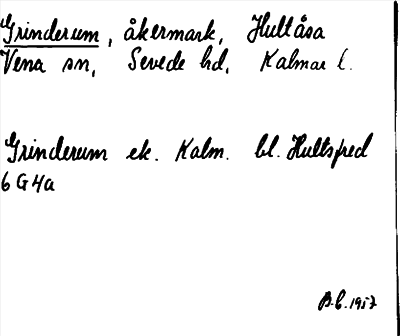 Grinderum, åkermark, Hultåsa
Vena sn, Sevede hd, Kalmar l.
Grinderum ek. Kalm. bl. Hultsfred
6 G 4a
B.L. 1957